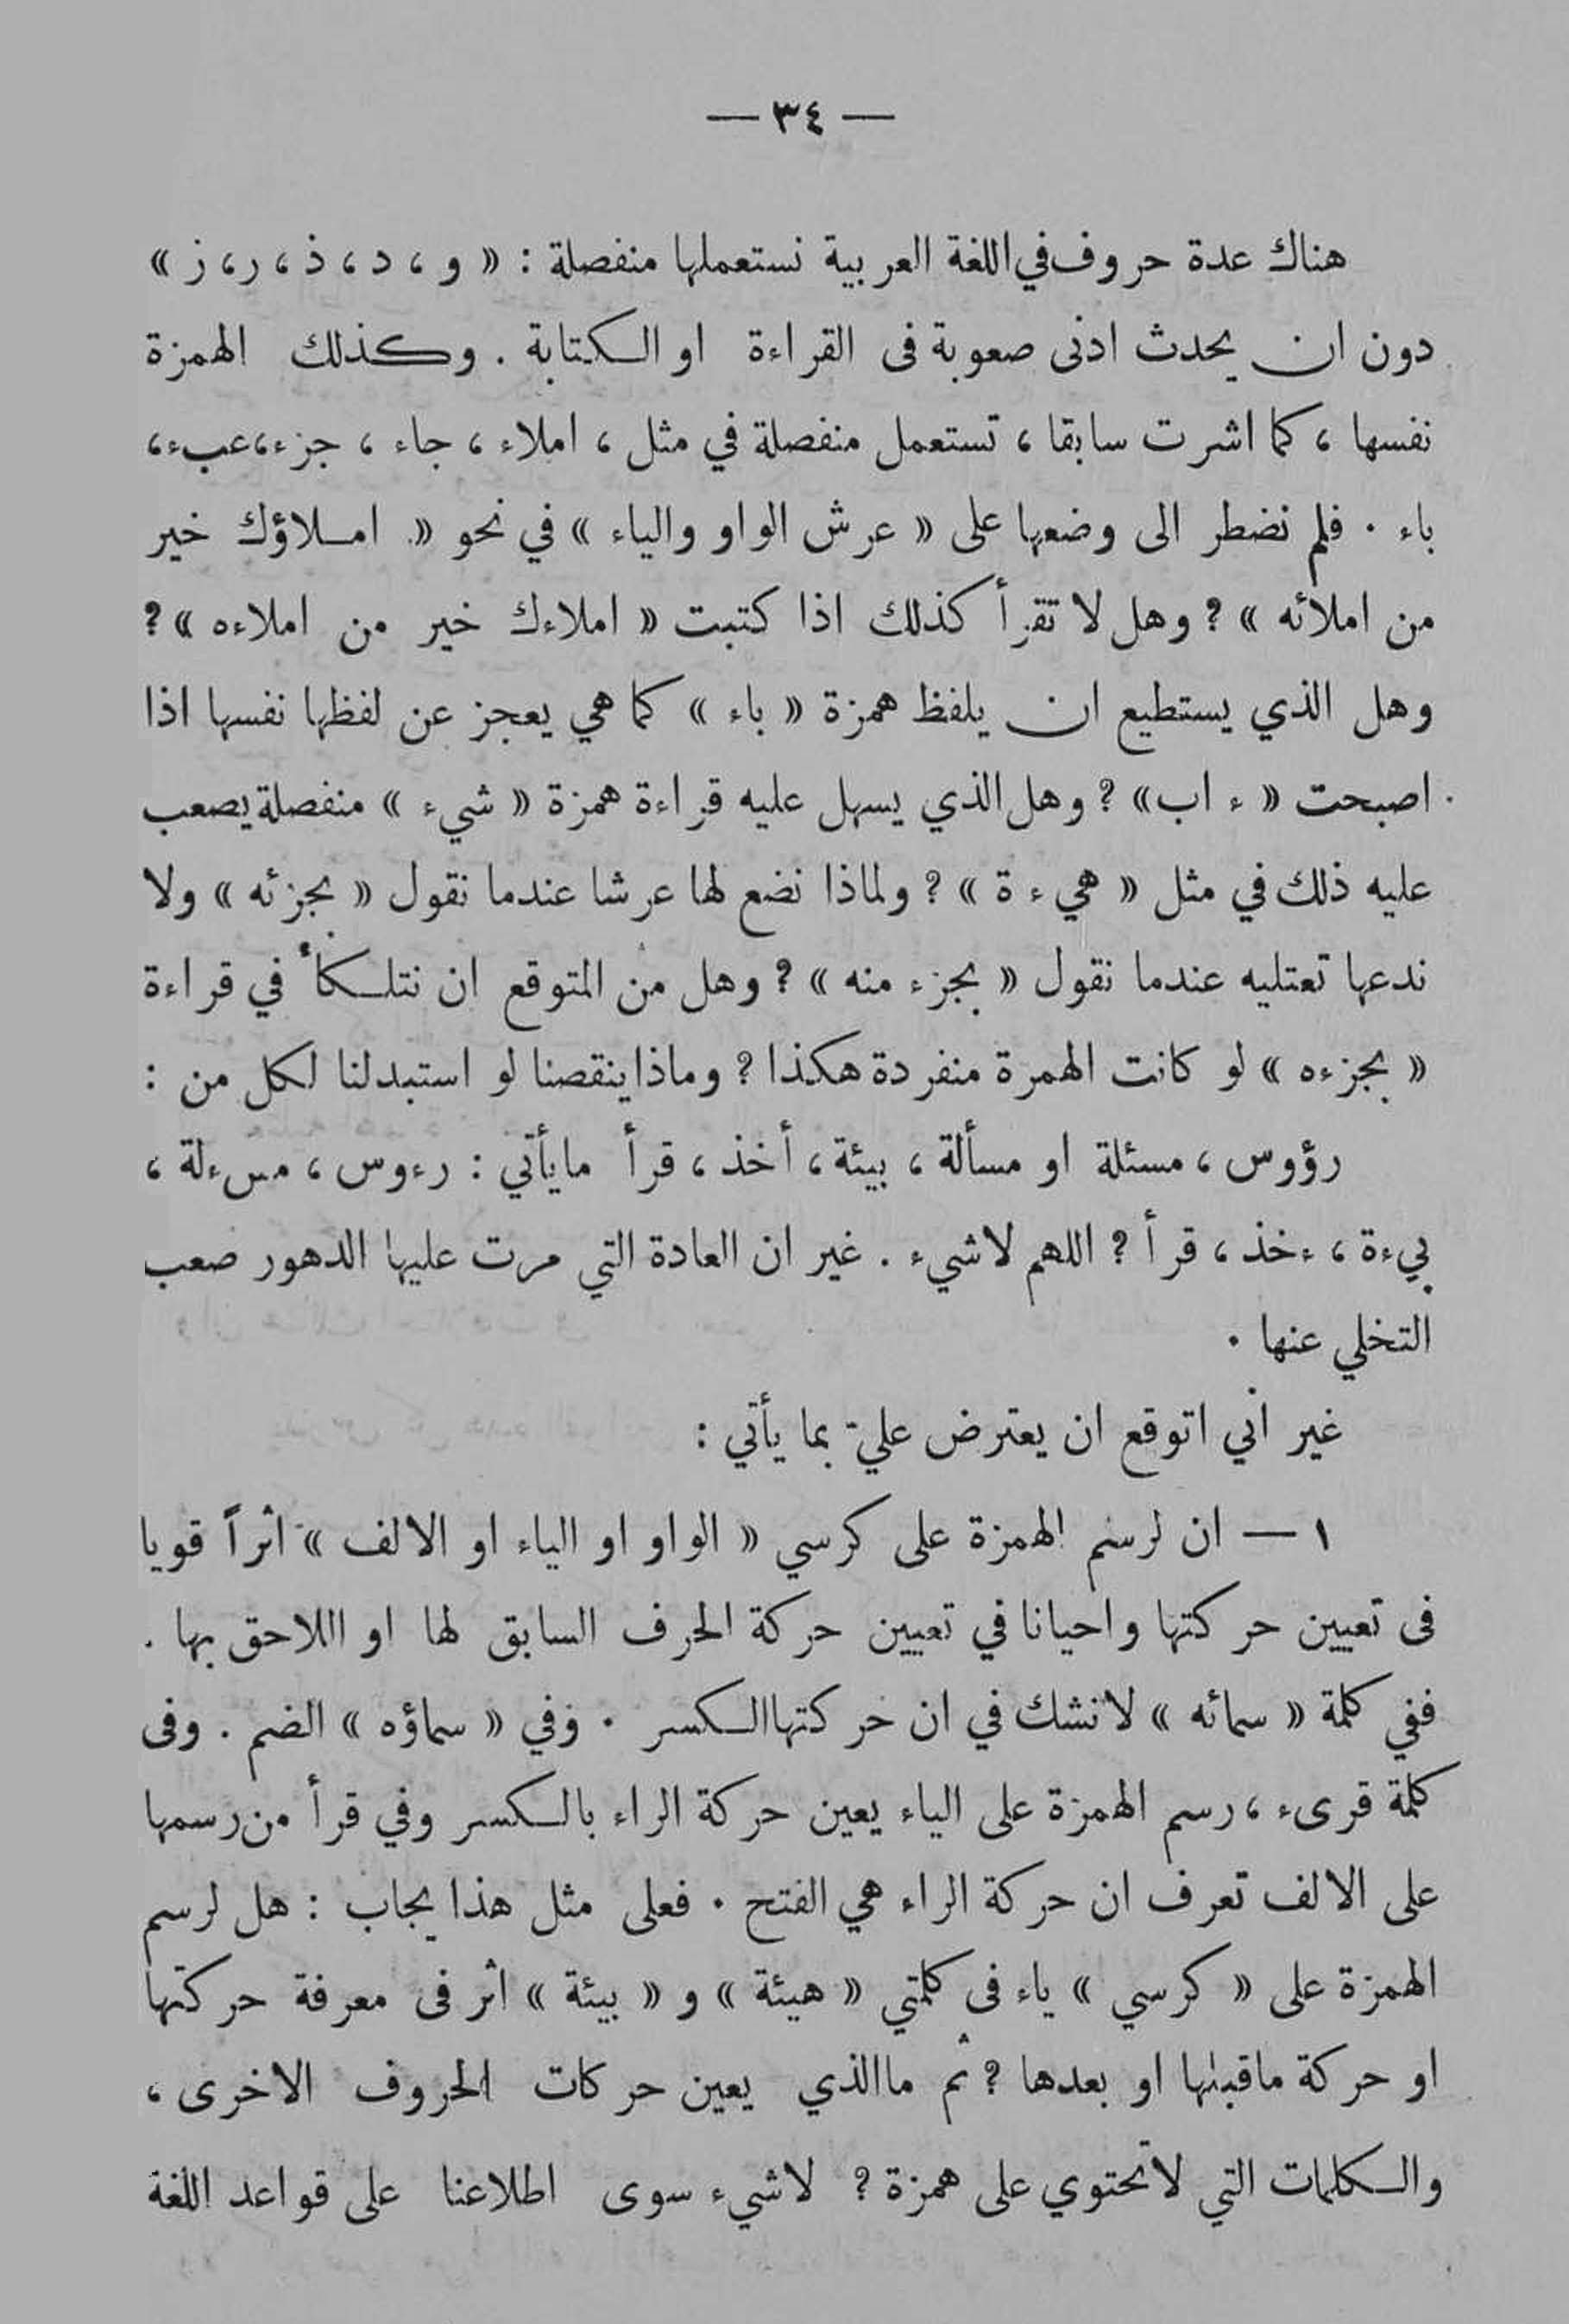 — ٣٤ —
هناك عدة حروف في اللغة العربية نستعملها منفصلة : « و ، د ، ذ ، ر ، ز »
دون ان يحدث ادنى صعوبة فى القراءة او الكتابة . وكذلك الهمزة
نفسها ، كما اشرت سابقا ، تستعمل منفصلة في مثل ، املاء ، جاء ، جزء ، عبء ،
باء . فلم نضطر الى وضعها على « عرش الواو والياء » في نحو « املاؤك خير
من املائه » ? وهل لا تقرأ كذلك اذا كتبت « املاءك خير من املاءه » ?
وهل الذي يستطيع ان يلفظ همزة « باء » كما هي يعجز عن لفظها نفسها اذا
اصبحت « ء اب » ? وهل الذي يسهل عليه قراءة همزة « شيء » منفصلة يصعب
عليه ذلك في مثل « هيء ة » ? ولماذا نضع لها عرشا عندما نقول « بجزئه » ولا
ندعها تعتليه عندما نقول « بجزء منه » ? وهل من المتوقع ان نتلكأ في قراءة
« بجزءه » لو كانت الهمرة منفردة هكذا ? وماذا ينقصنا لو استبدلنا لكل من :
رؤوس ، مسئلة او مسألة ، بيئة ، أخذ ، قرأ مايأتي : رءوس ، مسءلة ،
بيءة ، ءخذ ، قرأ ? اللهم لاشيء . غير ان العادة التي مرت عليها الدهور صعب
التخلي عنها .
غير أني اتوقع ان يعترض عليّ بما يأتي :
١ — ان لرسم الهمزة على كرسي « الواو او الياء او الالف » اثراً قويا
فى تعيين حركتها واحيانا في تعيين حركة الحرف السابق لها او اللاحق بها .
ففي كلمة « سمائه » لانشك في ان حركتها الكسر . وفي « سماؤه » الضم . وفى
كلمة قرىء ، رسم الهمزة على الياء يعين حركة الراء بالكسر وفي قرأ من رسمها
على الالف تعرف ان حركة الراء هي الفتح . فعلى مثل هذا يجاب : هل لرسم
الهمزة على « كرسي » ياء فى كلمتي « هيئة » و « بيئة » اثر فى معرفة حركتها
او حركة ماقبلها او بعدها ? ثم ماالذي يعين حركات الحروف الاخرى ،
والكلمات التي لاتحتوي على همزة ? لاشيء سوى اطلاعنا على قواعد اللغة